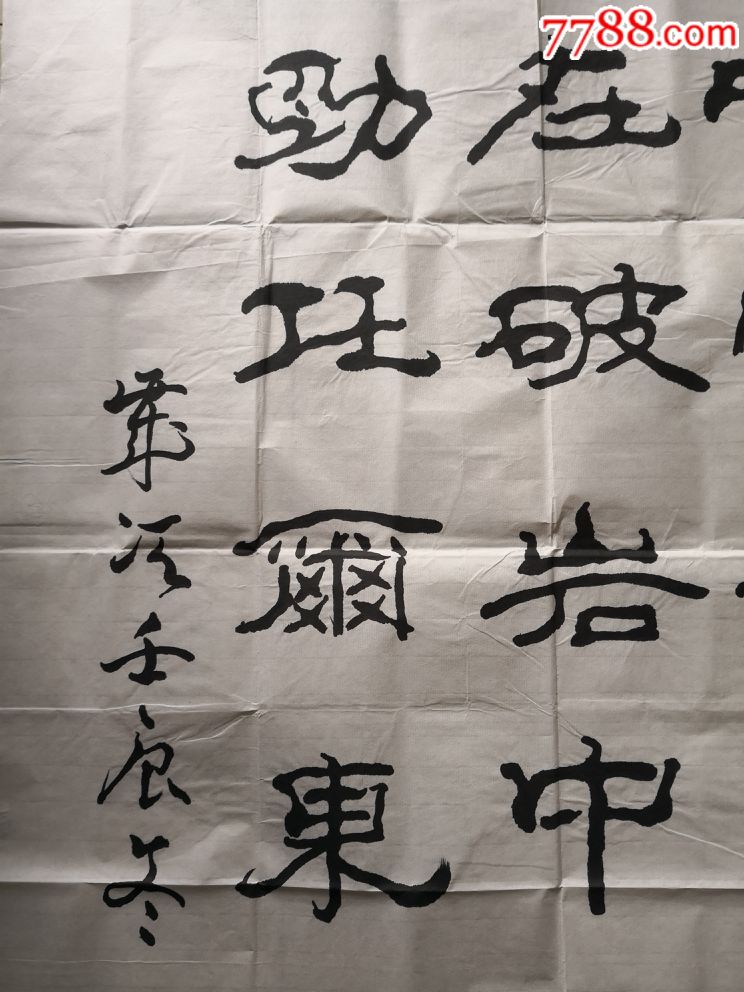 7788.com
在破岩中
勁任爾東
歲次壬辰冬